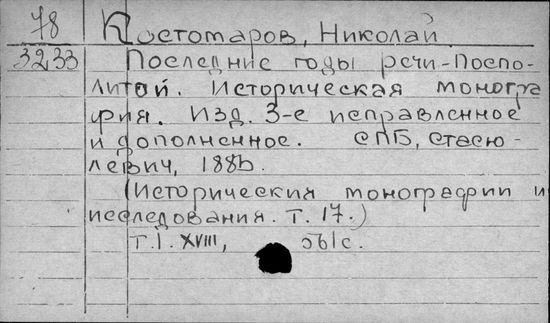 78 Костомаров, Николай
3233 Последние годы речи-Поспо-
литой. Историческая моногра
фия. Изд. 3-е исправленное
и дополненное. СПБ, Стасю-
левич, 1886.
(Исторические монографии и
исследования. т. 17.)
т.I. XVIII, с.